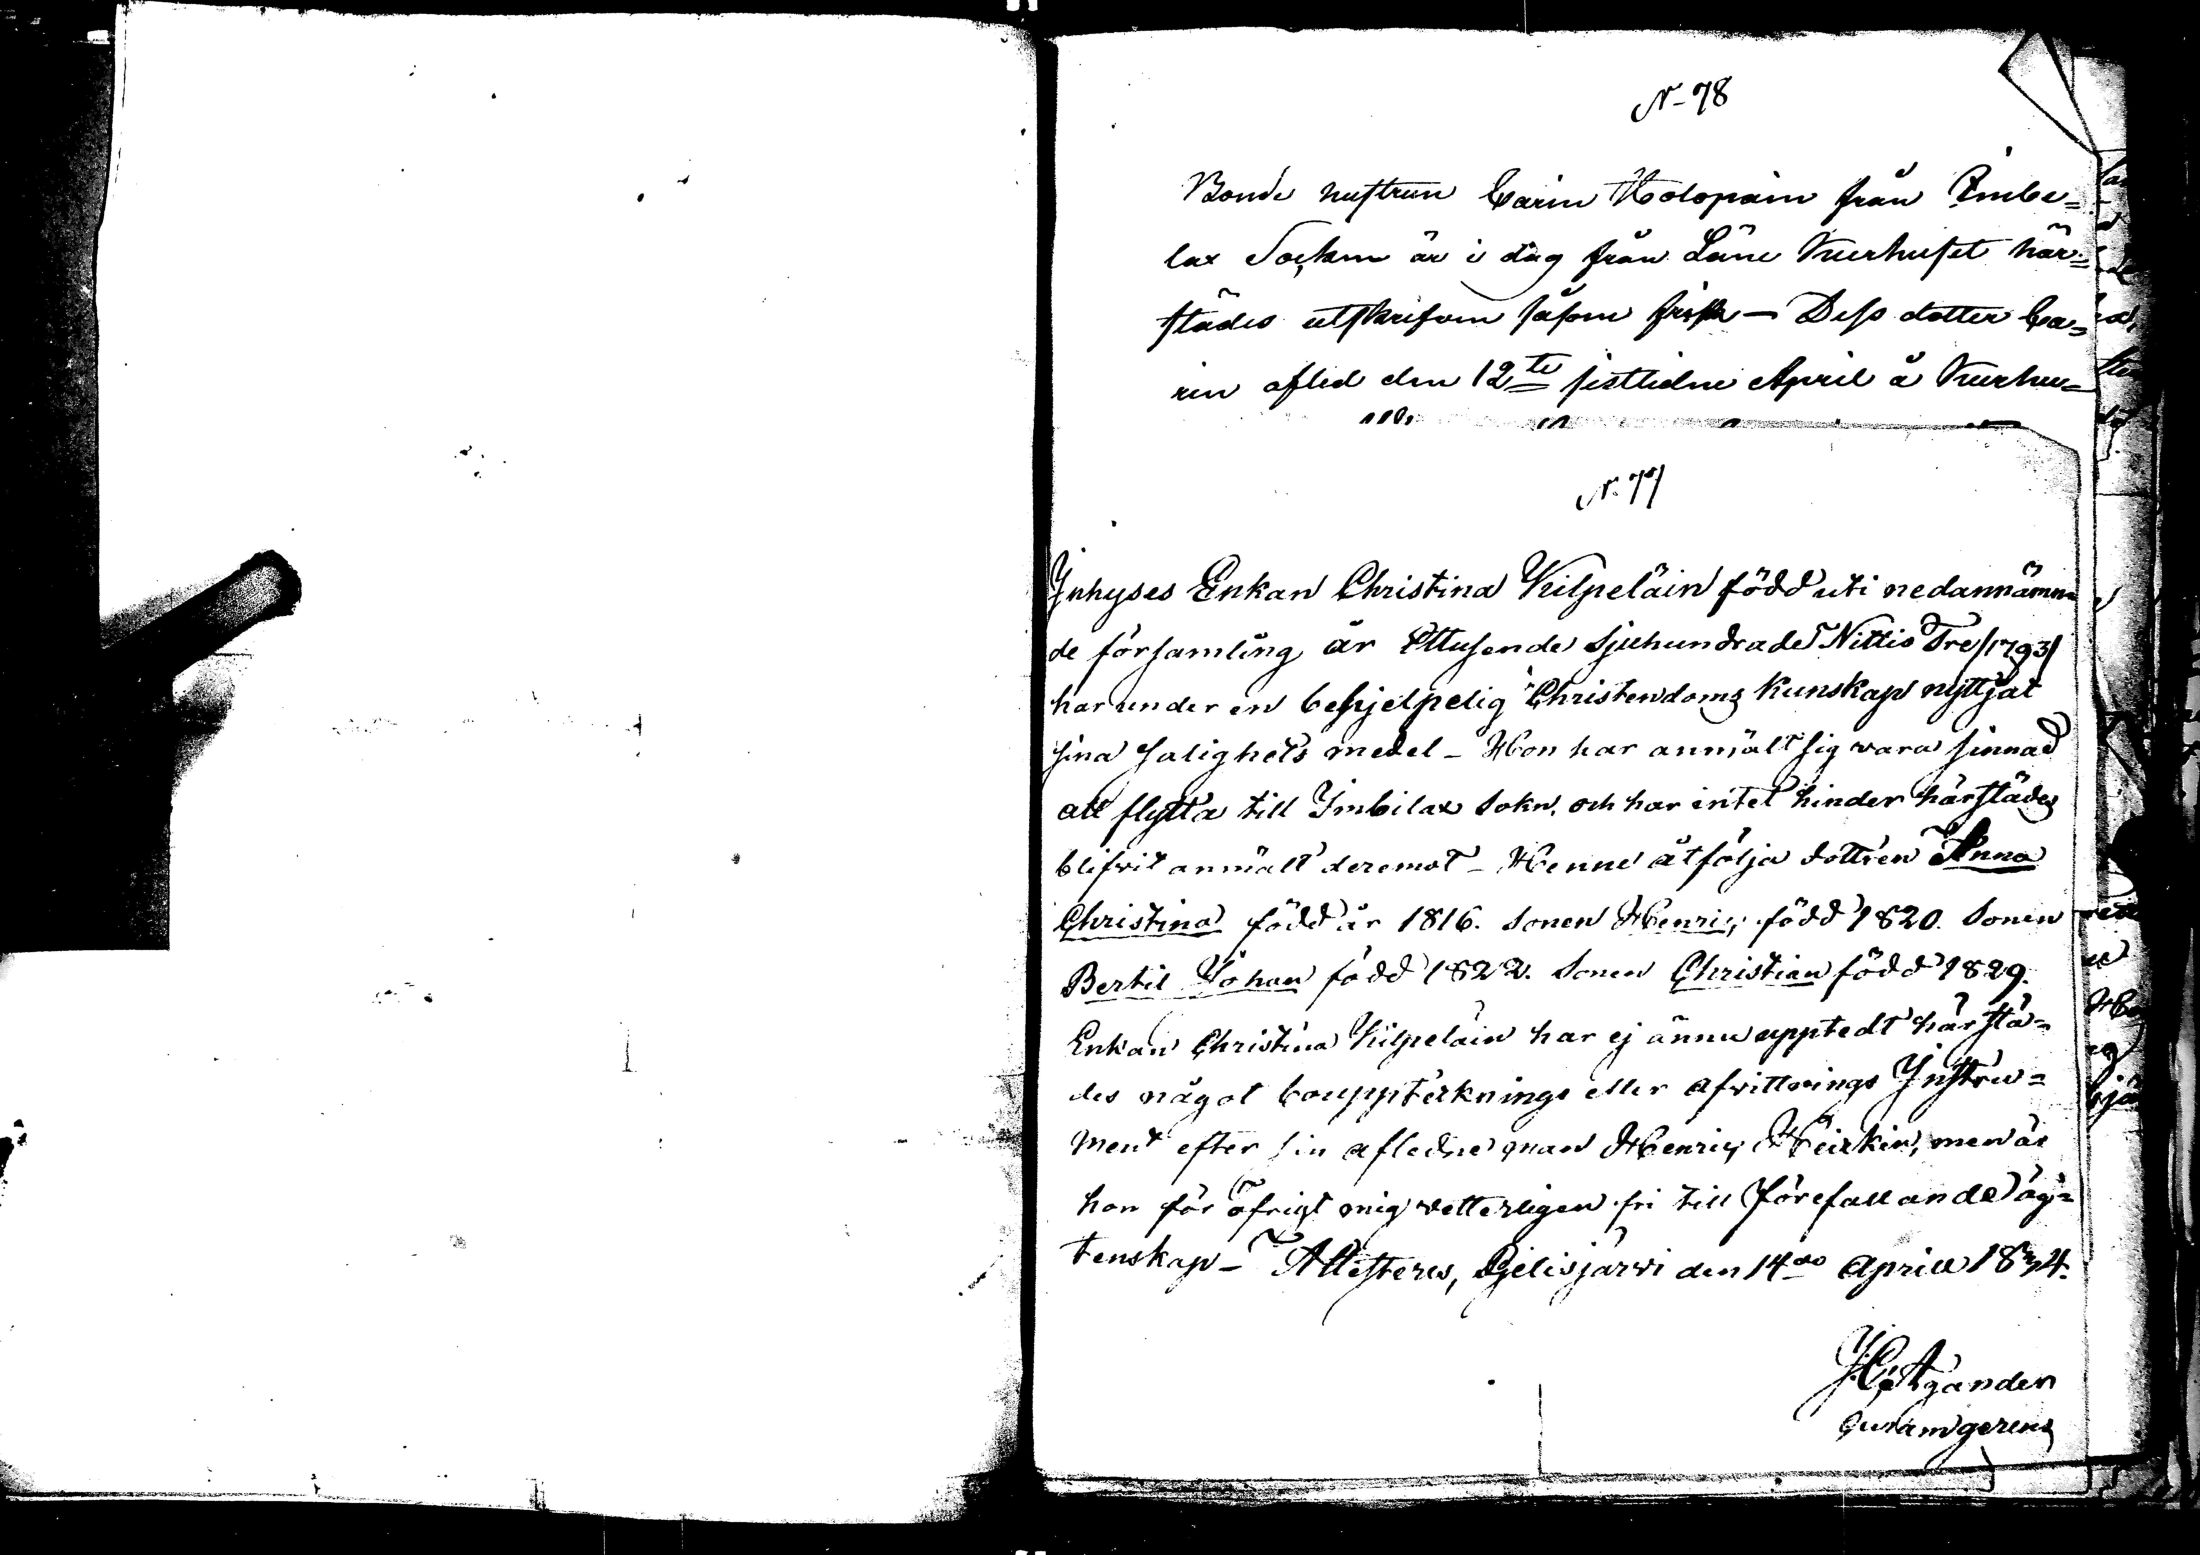 N- 78
Bonde hustrun Carin Holopain från Imbe=
lax Socken är i dag från Läns Kurhuset här=
städes utskrifven såsom frisk — Dess dotter Ca=
rin afled den 12te sistlidne April å Kurhu=
N. 77
Inhyses Enkan Christina Kilpeläin född uti nedannämn=
de församling år Ettusende Sjuhundrade Nittio Tre /1793/
har under en behjelpelig Christendoms Kunskap nyttjat
sina Salighets medel – Hon har anmält sig vara sinnad
att flytta till Imbilax Sokn, och har intet hinder härstädes
blifvit anmält deremot – Henne åtfölja dottren Anna
Christina född år 1816. Sonen Henric, född 1820. Sonen
Bertil Johan född 1822. Sonen Christian född 1829.
Enkan Christina Kilpeläin har ej ännu upptedt härstä=
des något bouppteknings eller afvittrings Instru=
ment efter sin afledne man Henric, men är
hon för öfrigt mig vetterligen fri till förefallande äg=
tenskap – Attesteres, Pjelisjärvi den 14de Aprill 1834.
Aganden
Curam gerens